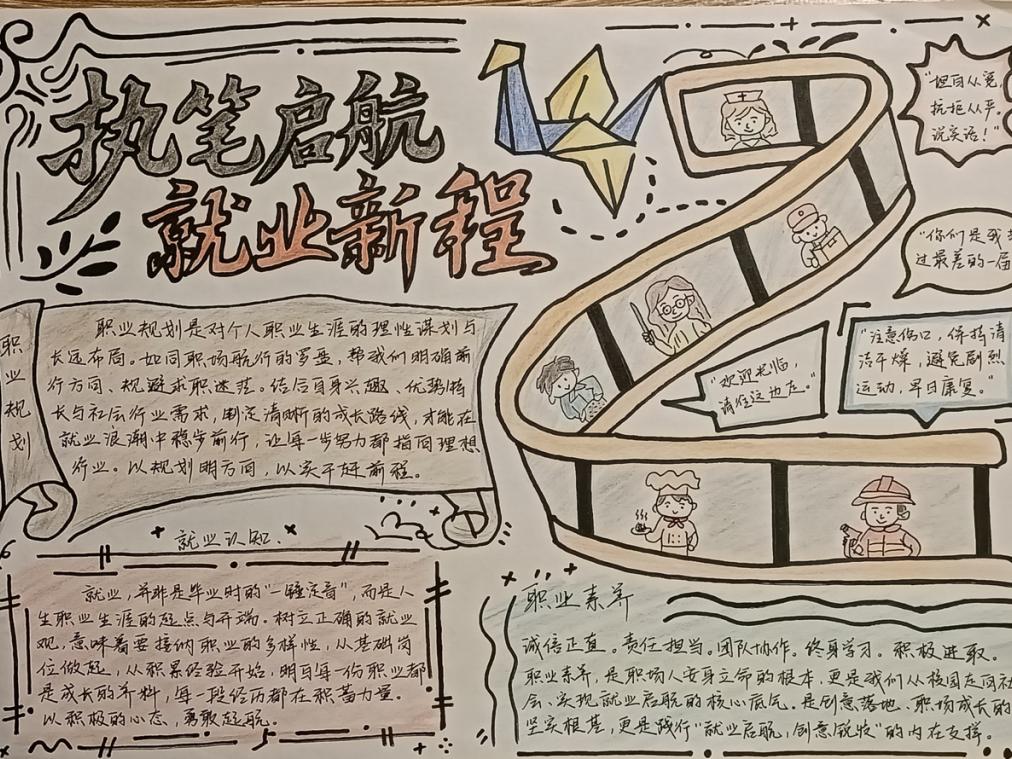 执笔启航
就业新程
"坦白从宽,
抗拒从严,
说实话!"
"你们是我
过最差的一届
"欢迎光临,
请往这边走。"
"注意伤口,保持清
洁干燥,避免剧烈
运动,早日康复。"
职业规划
职业规划是对个人职业生涯的理性谋划与
长远布局。如同职场航行的罗盘,帮我们明确前
行方向、规避求职迷茫。结合自身兴趣、优势特
长与社会行业需求,制定清晰的成长路线,才能在
就业浪潮中稳步前行,让每一步努力都指向理想
行业。以规划明方向,以实干赶前程。
就业认知
就业,并非是毕业时的"一锤定音",而是人
生职业生涯的起点与开端。树立正确的就业
观,意味着要接纳职业的多样性,从基础岗
位做起,从积累经验开始,明白每一份职业都
是成长的养料,每一段经历都在积蓄力量。
以积极的心态,勇敢起航。
职业素养
诚信正直。责任担当。团队协作。终身学习。积极进取。
职业素养,是职场人安身立命的根本,更是我们从校园走向社
会、实现就业启航的核心底气。是创意落地、职场成长的
坚实根基,更是践行"就业启航,创意锐发"的内在支撑。